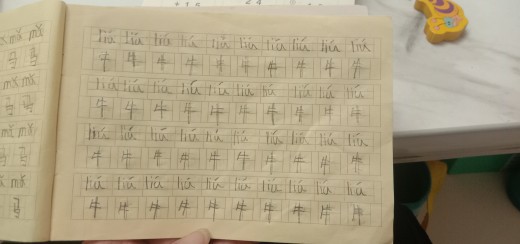 mǎ mǎ
马 马
mǎ mǎ
马 马
mǎ mǎ
马 马
mǎ mǎ
马
niú niú niú niú niú niú niú niú niú niú
牛 牛 牛 牛 牛 牛 牛 牛 牛 牛
niú niú niú niú niú niú niú niú niú niú
牛 牛 牛 牛 牛 牛 牛 牛 牛 牛
niú niú niú niú niú niú niú niú niú niú
牛 牛 牛 牛 牛 牛 牛 牛 牛 牛
niú niú niú niú niú niú niú niú niú niú
牛 牛 牛 牛 牛 牛 牛 牛 牛 牛